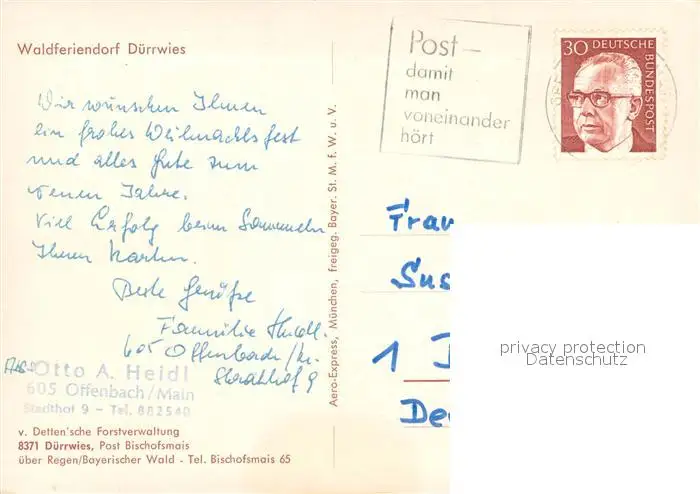 Waldferiendorf Dürrwies
Wir wünschen Ihnen
ein frohes Weihnachtsfest
und alles Gute zum
neuen Jahre.
Viel Erfolg beim Sammeln
Ihrer Karten.
Beste Grüße
Familie Heidl.
605 Offenbach/M.
Stadthof 9
Otto A. Heidl
605 Offenbach/Main
Stadthof 9 - Tel. 882540
v. Detten'sche Forstverwaltung
8371 Dürrwies, Post Bischofsmais
über Regen/Bayerischer Wald - Tel. Bischofsmais 65
Aero-Express, München, freigeg. Bayer. St. M. f. W. u. V.
Post -
damit
man
voneinander
hört
30 DEUTSCHE
BUNDESPOST
Frau
Sus
1
De
privacy protection
Datenschutz